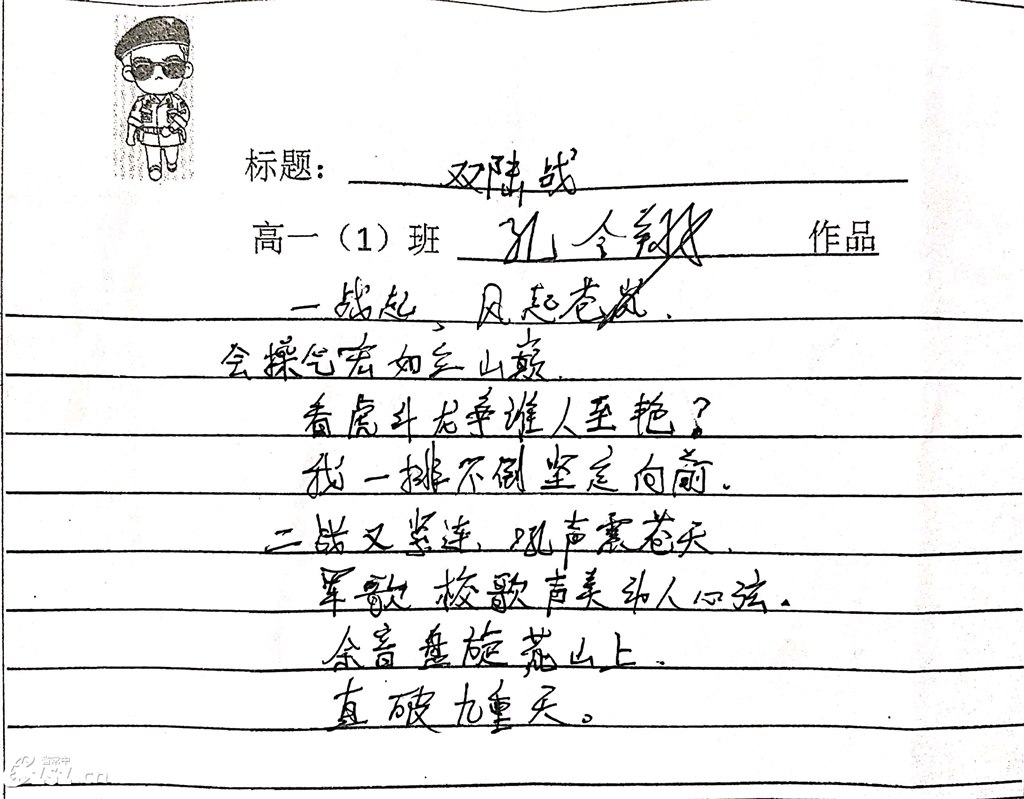 标题： 双陆战
高一（1）班 孔令翔 作品
一战起、风起苍岚.
会操气宏如立山巅.
看虎斗龙争谁人至艳？
我一排不倒坚定向前.
二战又紧连、吼声震苍天.
军歌校歌声美动人心弦.
余音盘旋荒山上.
直破九重天。